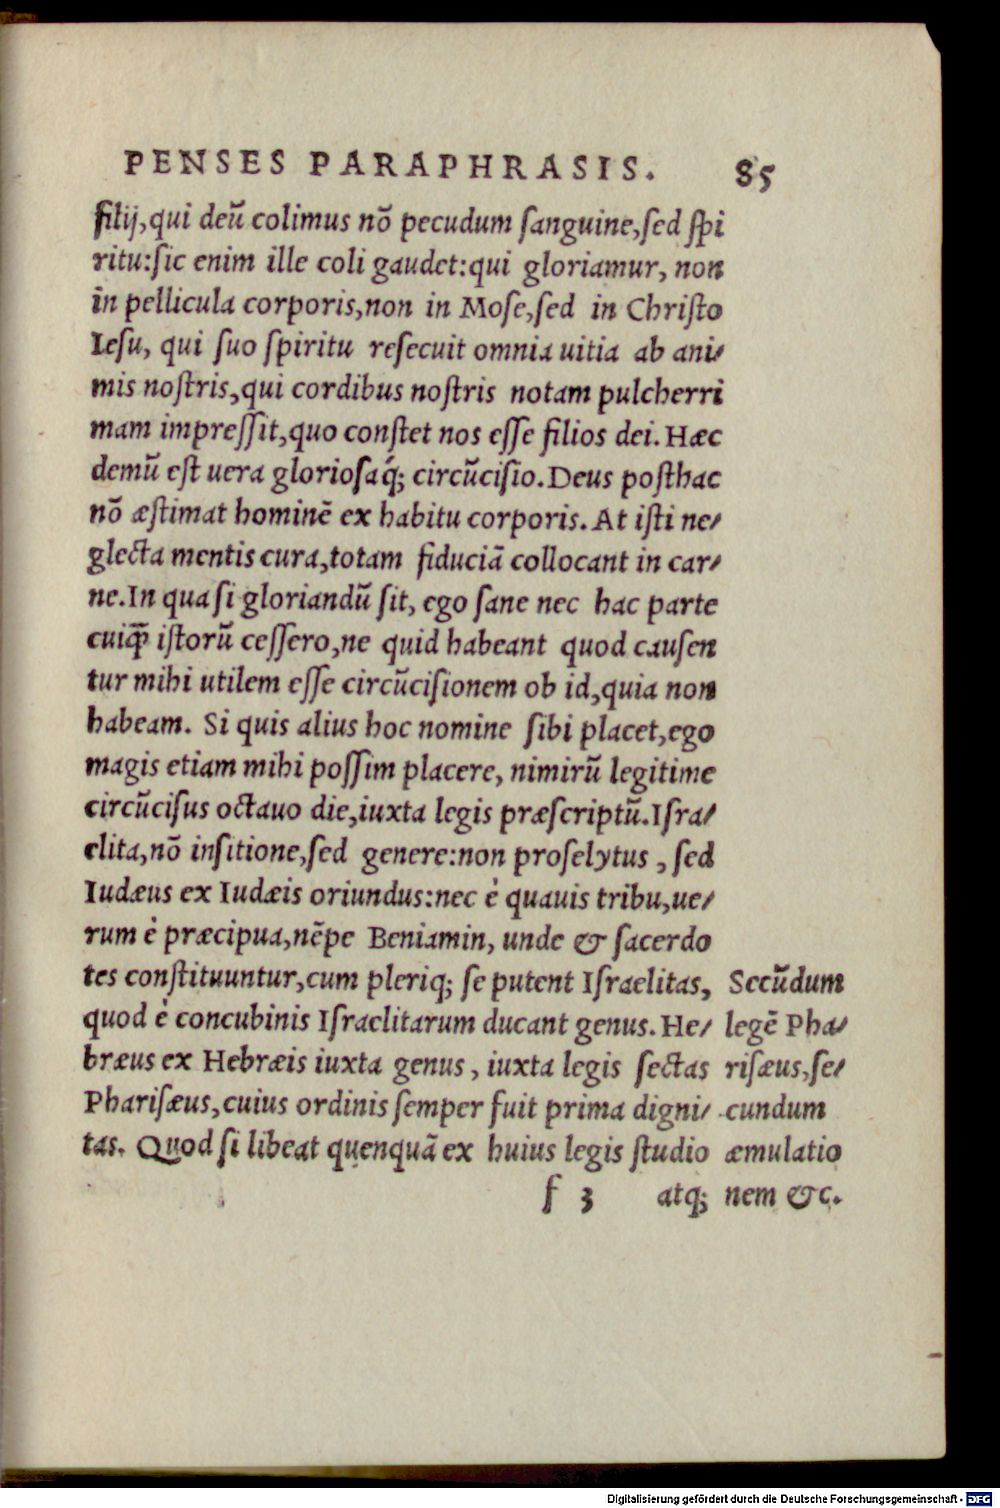 PENSES PARAPHRASIS. 85
filij,qui deū colimus nō pecudum ſanguine,ſed ſpi
ritu:ſic enim ille coli gaudet:qui gloriamur, non
in pellicula corporis,non in Moſe,ſed in Chriſto
Ieſu, qui ſuo ſpiritu reſecuit omnia uitia ab ani⸗
mis noſtris,qui cordibus noſtris notam pulcherri
mam impreſſit,quo conſtet nos eſſe filios dei. Hæc
demū eſt uera glorioſaq́; circūciſio. Deus poſthac
nō æſtimat hominē ex habitu corporis. At iſti ne⸗
glecta mentis cura,totam fiduciā collocant in car⸗
ne. In qua ſi gloriandū ſit, ego ſane nec hac parte
cuiq̃ iſtorū ceſſero,ne quid habeant quod cauſen
tur mihi utilem eſſe circūciſionem ob id,quia non
habeam. Si quis alius hoc nomine ſibi placet,ego
magis etiam mihi poſſim placere, nimirū legitime
circūciſus octauo die,iuxta legis præſcriptū. Iſra⸗
elita,nō inſitione,ſed genere:non proſelytus , ſed
Iudæus ex Iudæis oriundus:nec è quauis tribu,ue⸗
rum è præcipua,nēpe Beniamin, unde & ſacerdo
tes conſtituuntur,cum pleriq; ſe putent Iſraelitas,
quod è concubinis Iſraelitarum ducant genus. He⸗
bræus ex Hebræis iuxta genus , iuxta legis ſectas
Phariſæus,cuius ordinis ſemper fuit prima digni⸗
tas. Quod ſi libeat quenquā ex huius legis ſtudio
f 3 atq;
Secūdum
legē Pha⸗
riſæus,ſe⸗
cundum
æmulatio
nem &c.
Digitalisierung gefördert durch die Deutsche Forschungsgemeinschaft - DFG